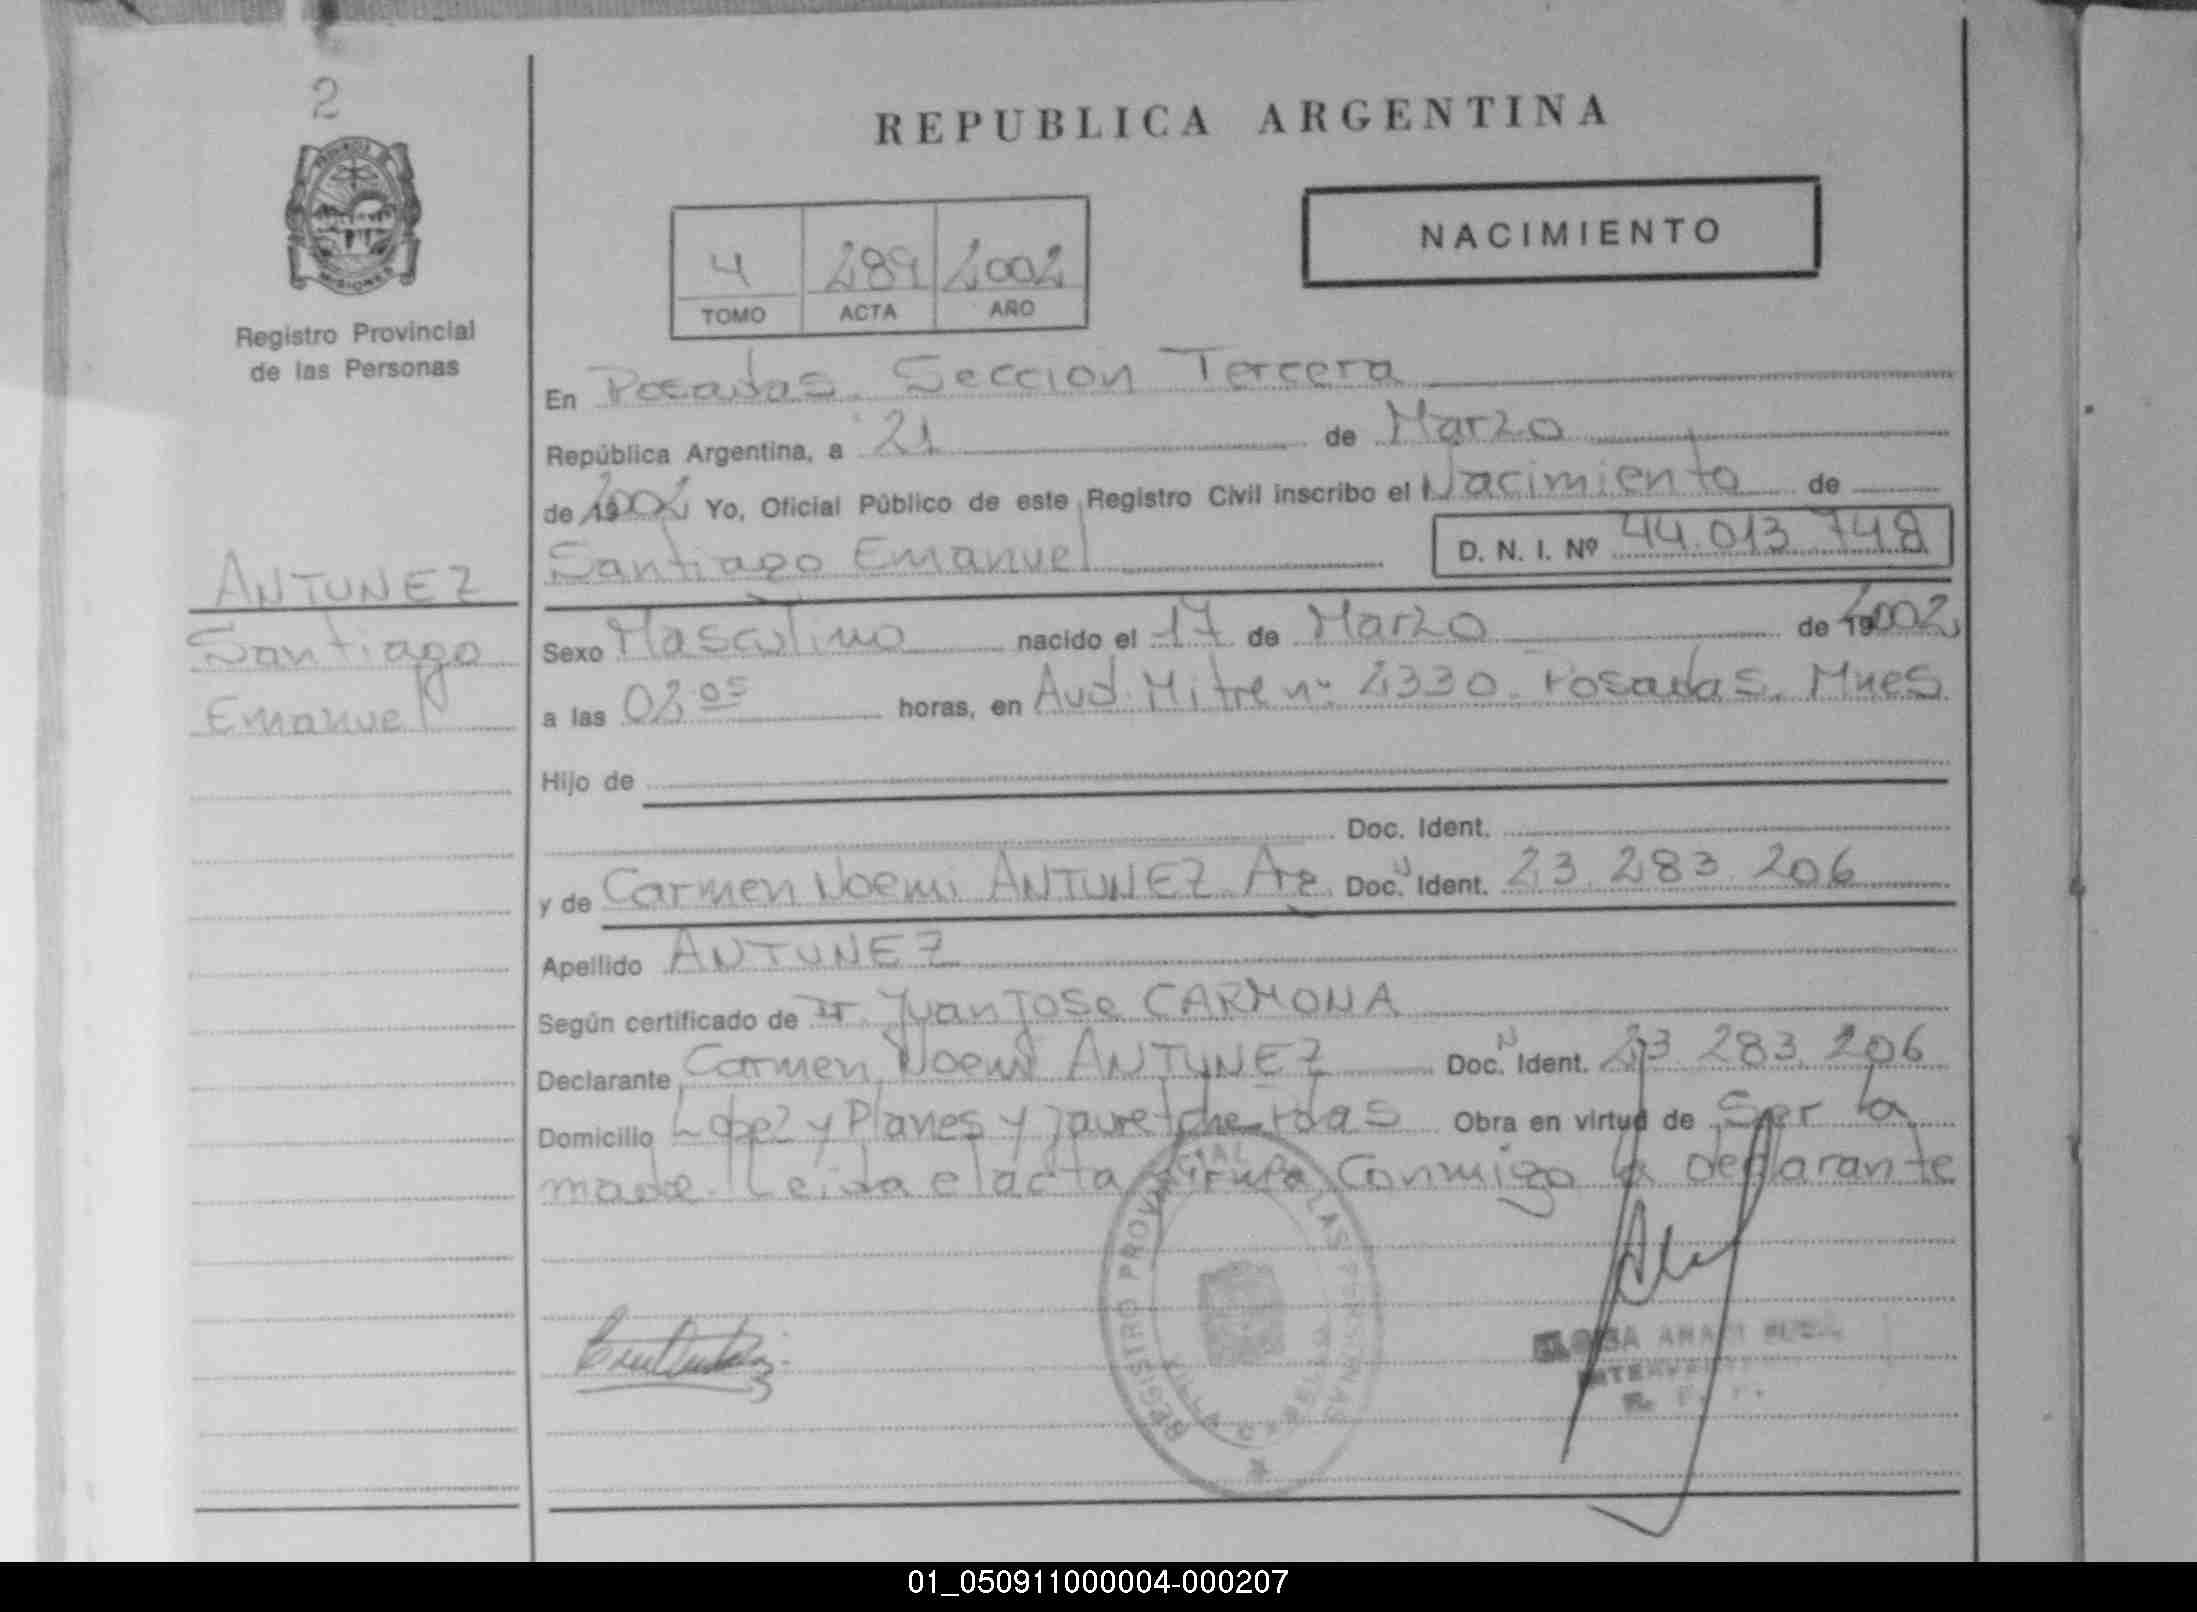 2
REPUBLICA ARGENTINA
NACIMIENTO
4 289 2002
TOMO ACTA AÑO
Registro Provincial
de las Personas
En Posadas. Seccion Tercera
República Argentina, a 21 de Marzo
de 2002 Yo, Oficial Público de este Registro Civil inscribo el Nacimiento de
Santiago Emanuel D. N. I. Nº 44.013.748
ANTUNEZ
Santiago
Emanuel
Sexo Masculino nacido el 17 de Marzo de 2002
a las 02 05 horas, en Avd. Mitre nº 2330. Posadas. Mnes
Hijo de
Doc. Ident.
y de Carmen Noemi ANTUNEZ Arg. Doc. N Ident. 23.283.206
Apellido ANTUNEZ
Según certificado de Dr. Juan Jose CARMONA
Declarante Carmen Noemi ANTUNEZ Doc. N Ident. 23.283.206
Domicilio Lopez y Planes y Jauretche Pdas Obra en virtud de Ser la
madre. Leida el acta firma conmigo la declarante
REGISTRO PROVINCIAL LAS PERSONAS
VILLA CABELLO
01_050911000004-000207